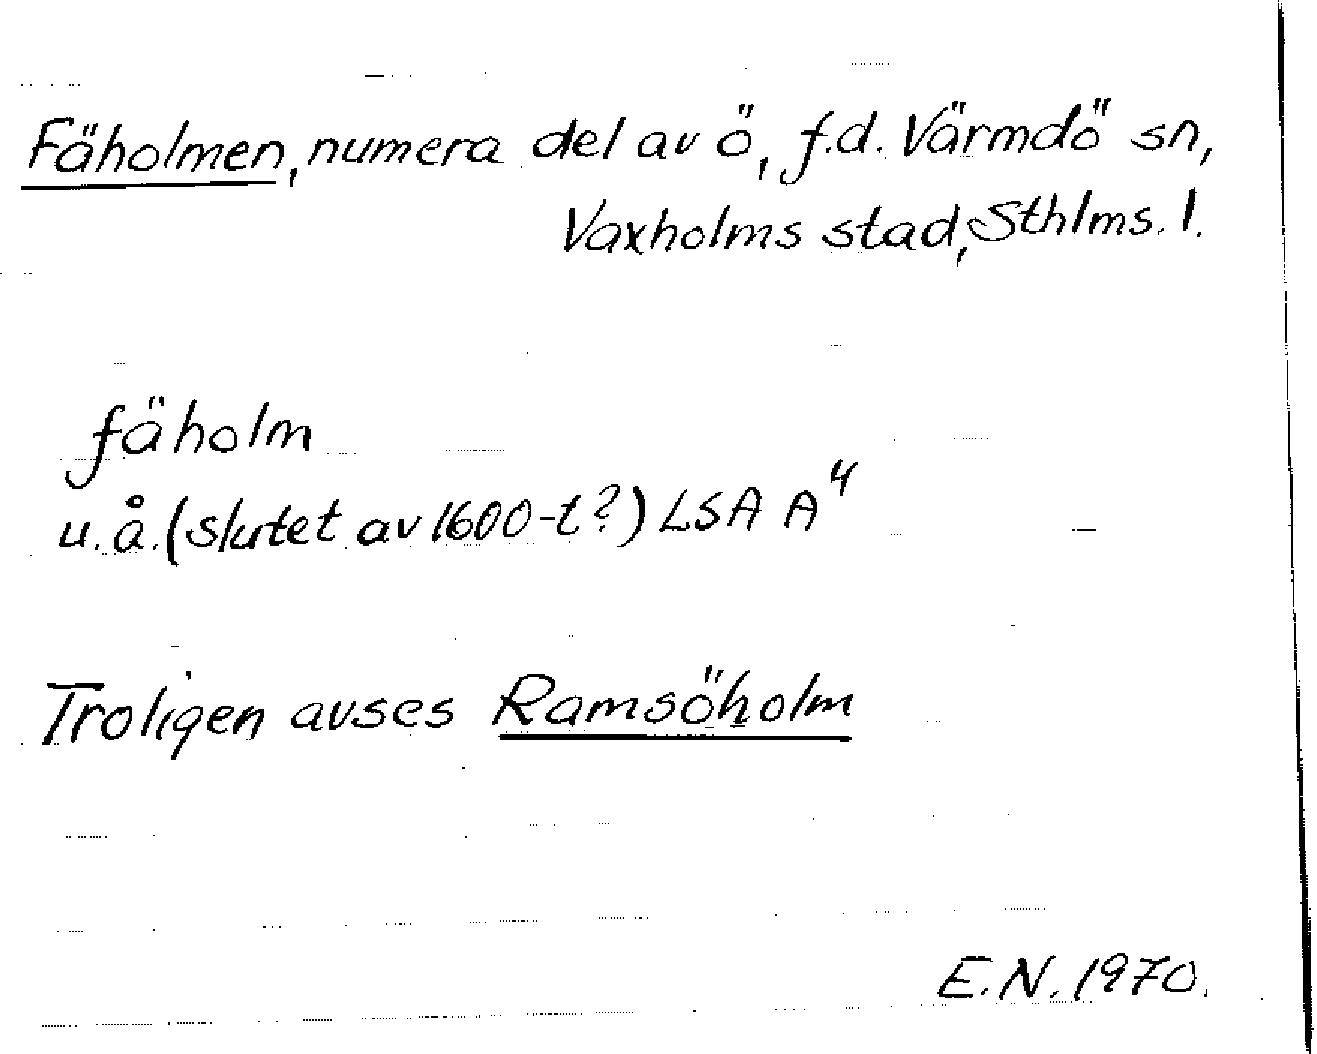 Fäholmen, numera del av ö, f.d. Värmdö sn,
Vaxholms stad, Sthlms. l.
fäholm
u.å. (slutet av 1600-t?) LSA A⁴
Troligen avses Ramsöholm
E.N. 1970.